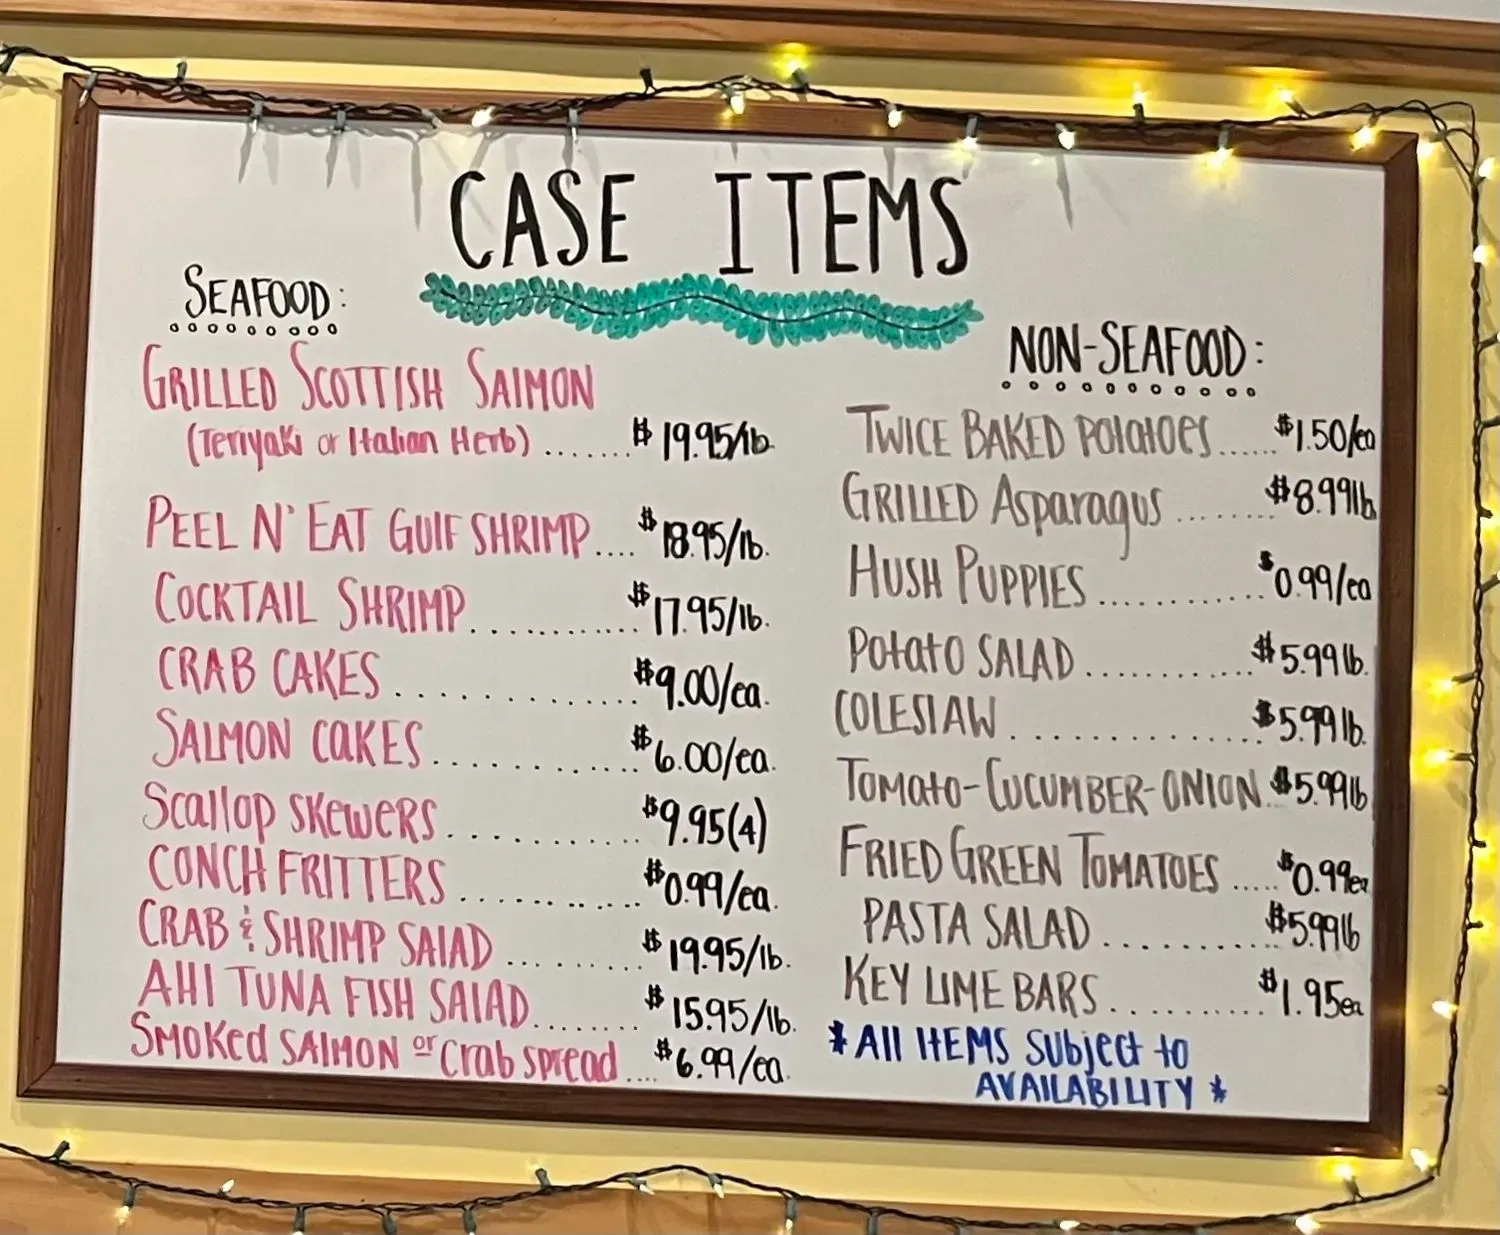 CASE ITEMS
SEAFOOD:
GRILLED SCOTTISH SALMON
(Teriyaki or Italian Herb) ....... $19.95/lb.
PEEL N' EAT GULF SHRIMP .... $18.95/lb.
COCKTAIL SHRIMP ............ $17.95/lb.
CRAB CAKES ............. $9.00/ea.
SALMON CAKES ............ $6.00/ea.
Scallop SKEWERS ........... $9.95(4)
CONCH FRITTERS ........... $0.99/ea.
CRAB & SHRIMP SALAD ......... $19.95/lb.
AHI TUNA FISH SALAD ........ $15.95/lb.
SMOKED SALMON or Crab spread .... $6.99/ea.
NON-SEAFOOD:
TWICE BAKED POTATOES ...... $1.50/ea
GRILLED Asparagus ........ $8.99lb
HUSH PUPPIES ............ $0.99/ea
Potato SALAD ............ $5.99lb.
COLESLAW .............. $5.99lb.
TOMATO-CUCUMBER-ONION . $5.99lb
FRIED GREEN TOMATOES ..... $0.99ea
PASTA SALAD ............ $5.99lb
KEY LIME BARS ........... $1.95ea
*All ITEMS Subject to
AVAILABILITY*